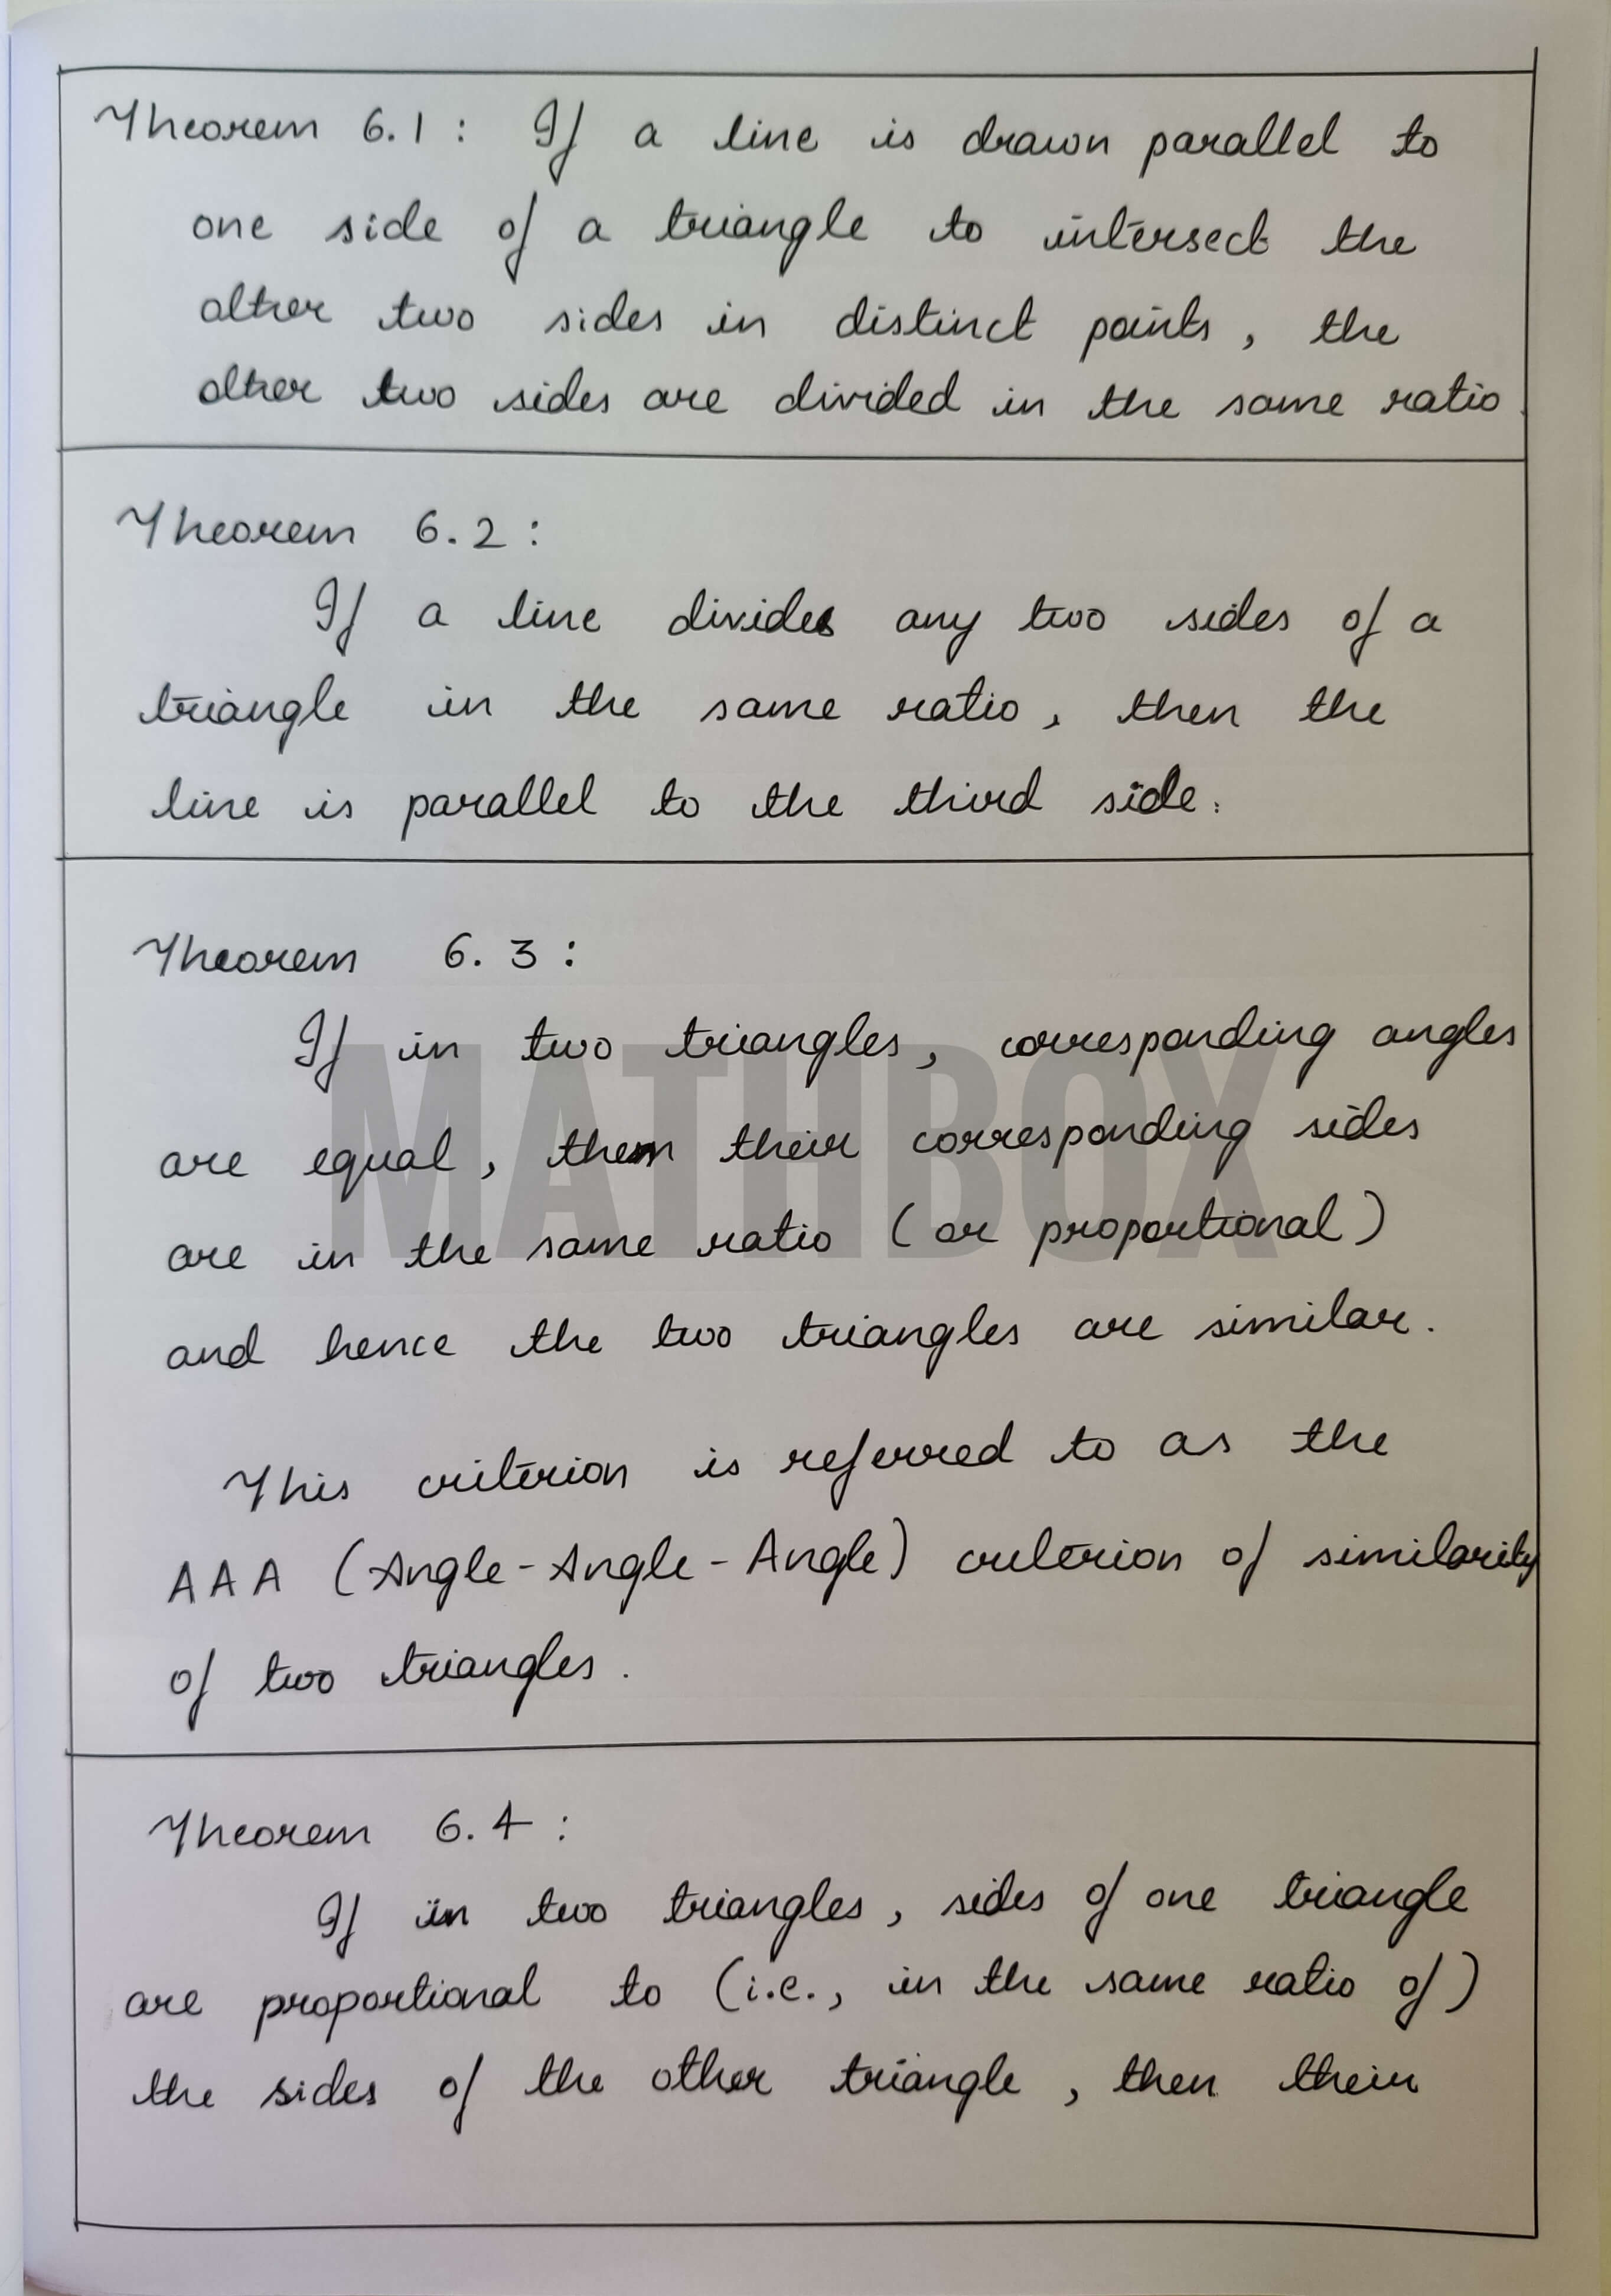 Theorem 6.1 : If a line is drawn parallel to
one side of a triangle to intersect the
other two sides in distinct points, the
other two sides are divided in the same ratio.
Theorem 6.2 :
If a line divides any two sides of a
triangle in the same ratio, then the
line is parallel to the third side.
Theorem 6.3 :
If in two triangles, corresponding angles
are equal, then their corresponding sides
are in the same ratio (or proportional)
and hence the two triangles are similar.
This criterion is referred to as the
AAA (Angle-Angle-Angle) criterion of similarity
of two triangles.
MATHBOX
Theorem 6.4 :
If in two triangles, sides of one triangle
are proportional to (i.e., in the same ratio of)
the sides of the other triangle, then their